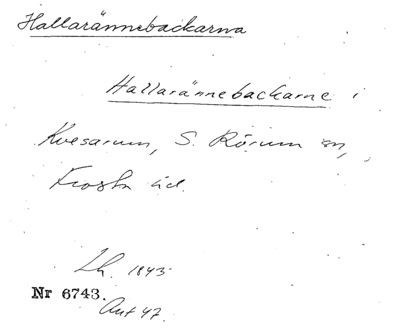 Hallarännebackarna
Hallarännebackarne i
Kvesarum, S. Rörum sn,
Frosta hd.
Lh. 1843
Nr 6743.
Ant 47.